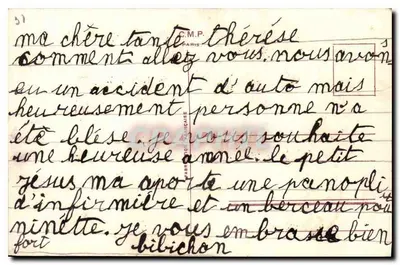 51
C.M.P.
PARIS
ma chère tante thérése
comment allez vous. nous avons
eu un accident d'auto mais
heureusement personne n'a
été blésé. je vous souhaite
une heureuse année. le petit
jésus ma aporte une panopli
d'infirmière et un berceau pour
ninette. je vous embrasse bien
fort bibichon